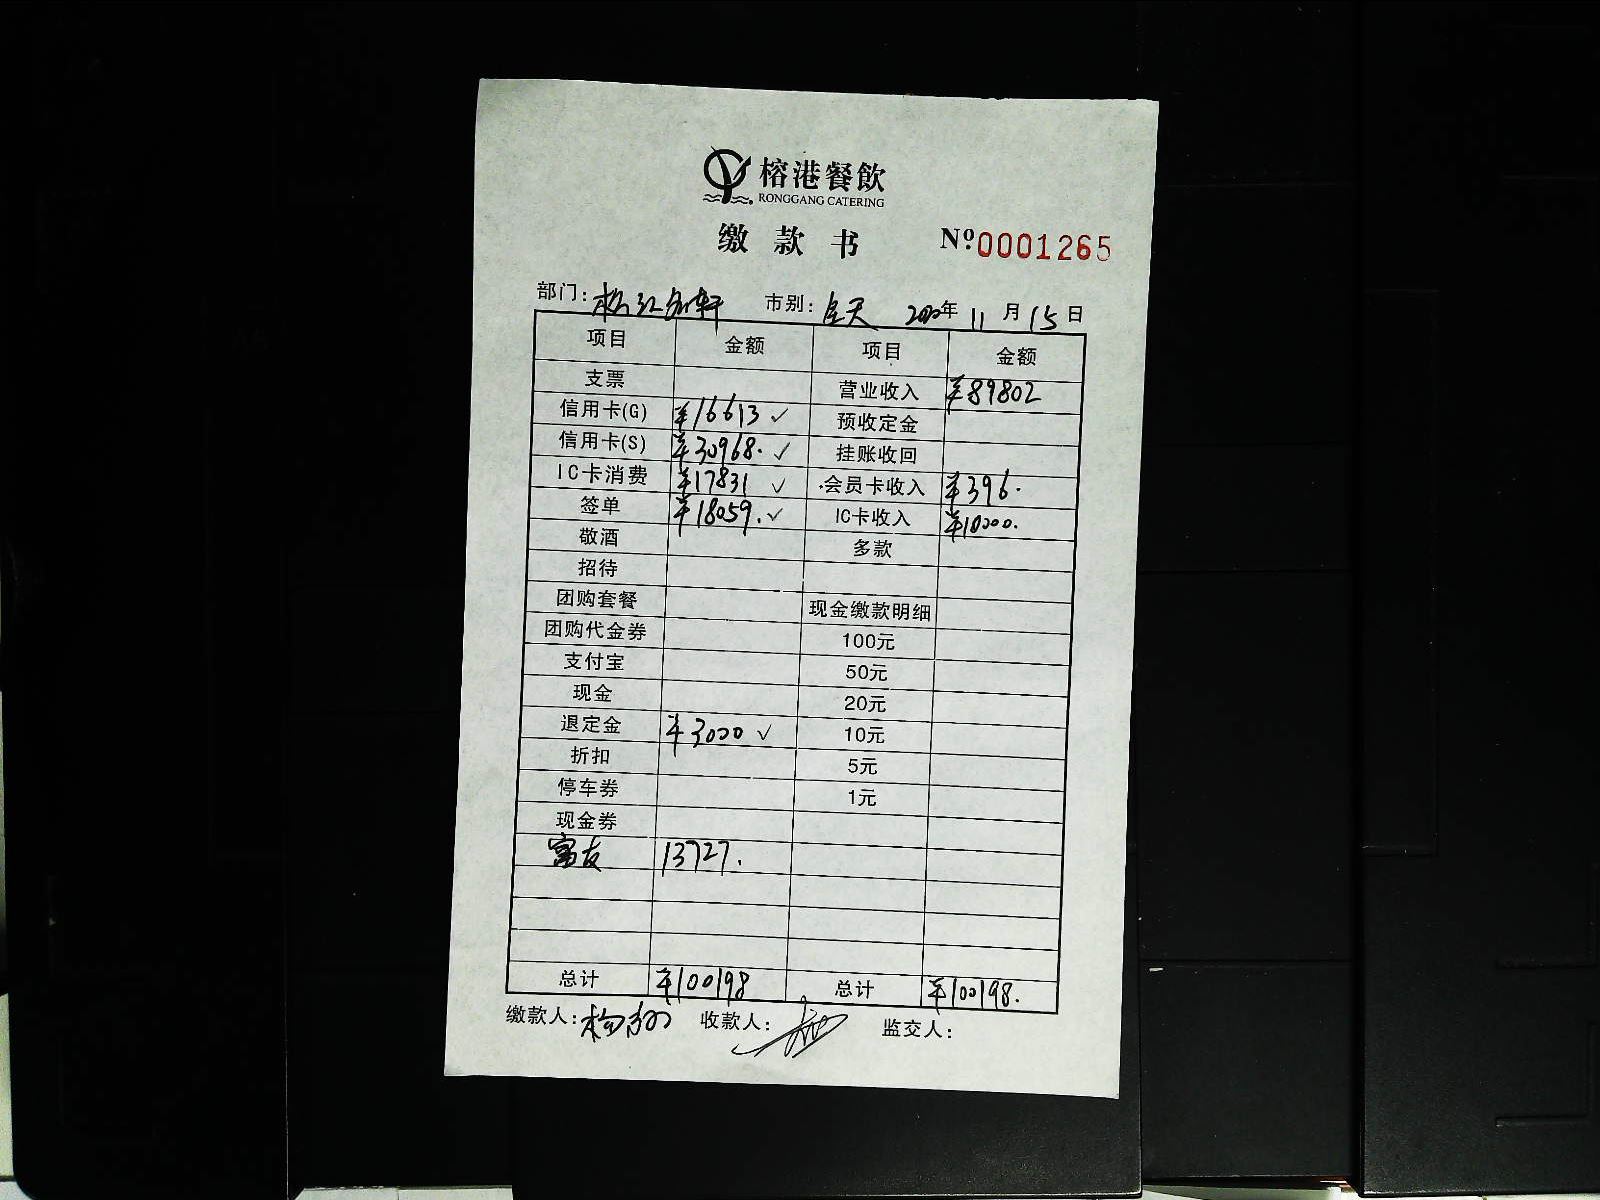 榕港餐飲
RONGGANG CATERING
缴款书 Nº 0001265
部门: 松江名轩 市别: 全天 2020年 11月 15日
项目 金额 项目 金额
支票 营业收入 ¥89802
信用卡(G) ¥16613 ✓ 预收定金
信用卡(S) ¥30968. ✓ 挂账收回
IC卡消费 ¥17831 ✓ 会员卡收入 ¥396.
签单 ¥18059. ✓ IC卡收入 ¥10000.
敬酒 多款
招待
团购套餐 现金缴款明细
团购代金券 100元
支付宝 50元
现金 20元
退定金 ¥3000 ✓ 10元
折扣 5元
停车券 1元
现金券
富友 13727.
总计 ¥100198 总计 ¥100198.
缴款人: 收款人: 监交人: